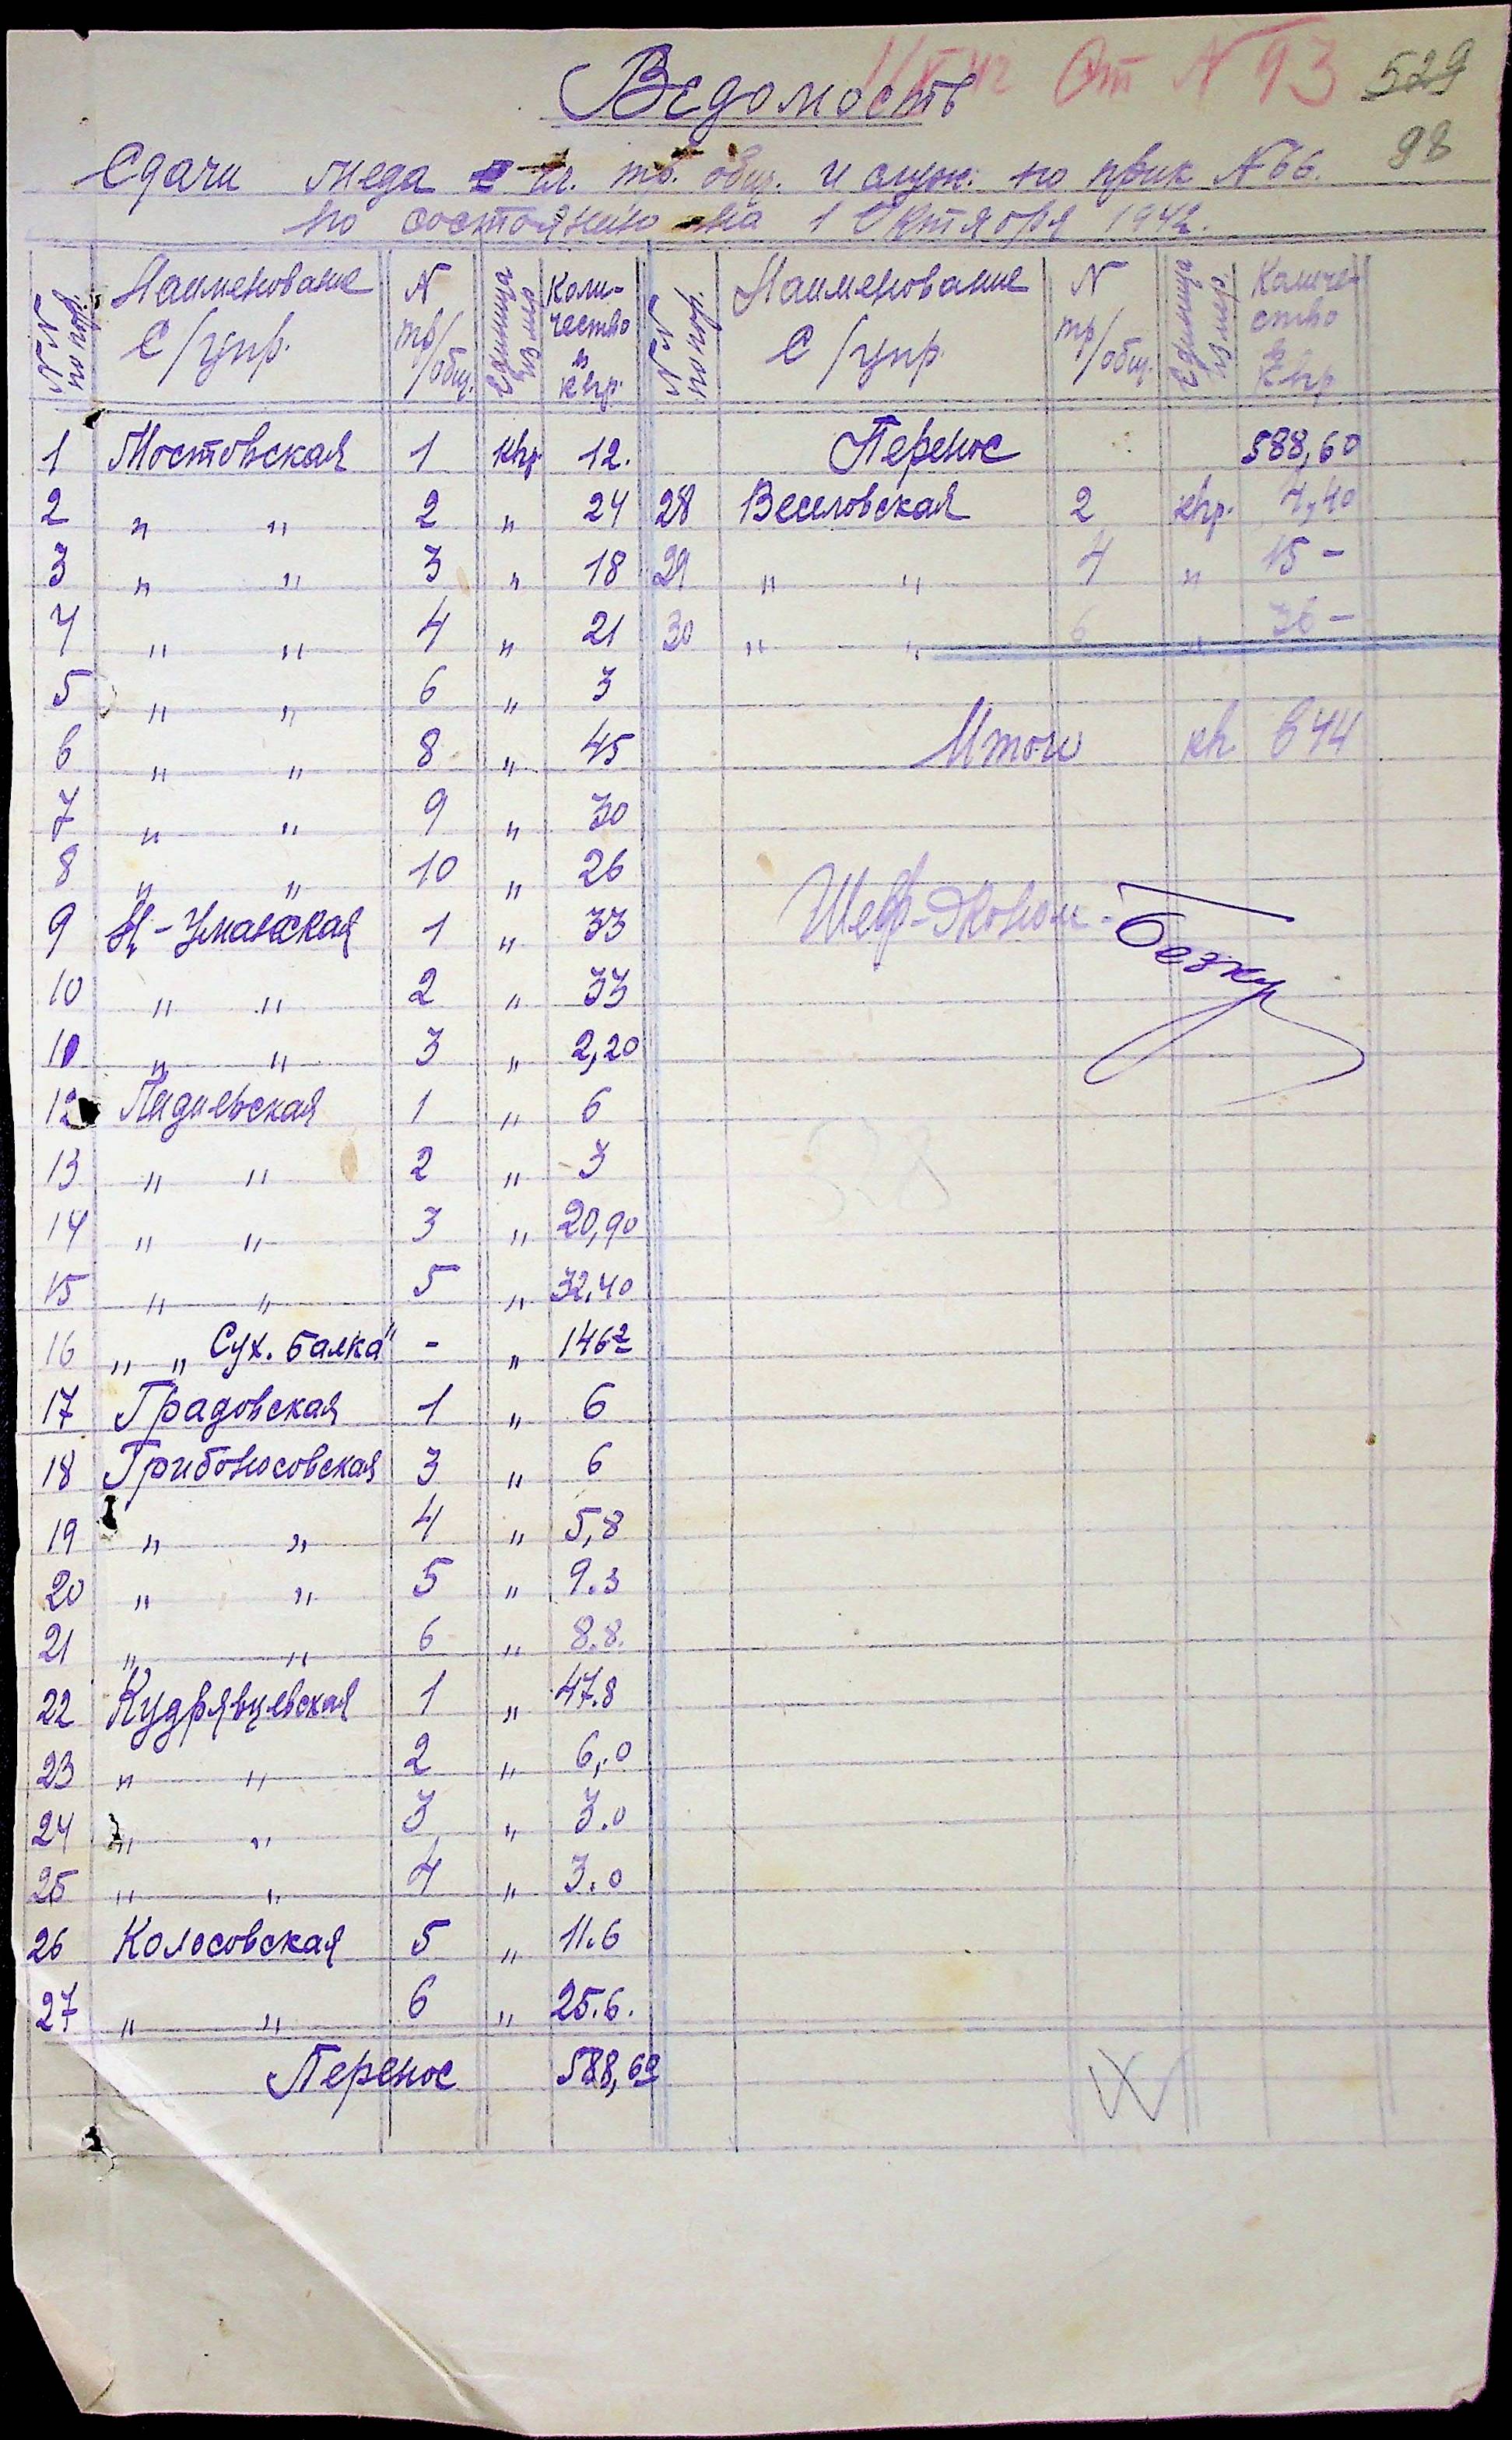 От N 93
529
Ведомость
98
Сдачи меда гл. тр. общ. и служ. по прик N 66.
по состоянию на 1 Октября 1942.
NN по пор. | Наименование С/упр. | N тр/общ. | Единица измер | Коли-чество в кгр. | NN по пор. | Наименование С/упр. | N тр/общ. | Единица измер. | Количе-ство в кгр
1 Мостовская 1 кгр 12.
2 " " 2 " 24
3 " " 3 " 18
4 " " 4 " 21
5 " " 6 " 3
6 " " 8 " 45
7 " " 9 " 30
8 " " 10 " 26
9 Н-Уманская 1 " 33
10 " " 2 " 33
11 " " 3 " 2,20
12 1 " 6
13 " " 2 " 3
14 " " 3 " 20,90
15 " " 5 " 32,40
16 " " Сух. балка" - " 146,2
17 Градовская 1 " 6
18 Грибоносовская 3 " 6
19 " " 4 " 5,8
20 " " 5 " 9.3
21 " " 6 " 8.8.
22 Кудрявцевская 1 " 47.8
23 " " 2 " 6,0
24 " " 3 " 3.0
25 " " 4 " 3.0
26 Колосовская 5 " 11.6
27 " " 6 " 25.6.
Перенос 588,60
Перенос 588,60
28 Веселовская 2 кгр. 4,40
29 " " 4 " 15 -
30 " " 6 " 36 -
Итого кг 644
Шеф-Эконом.